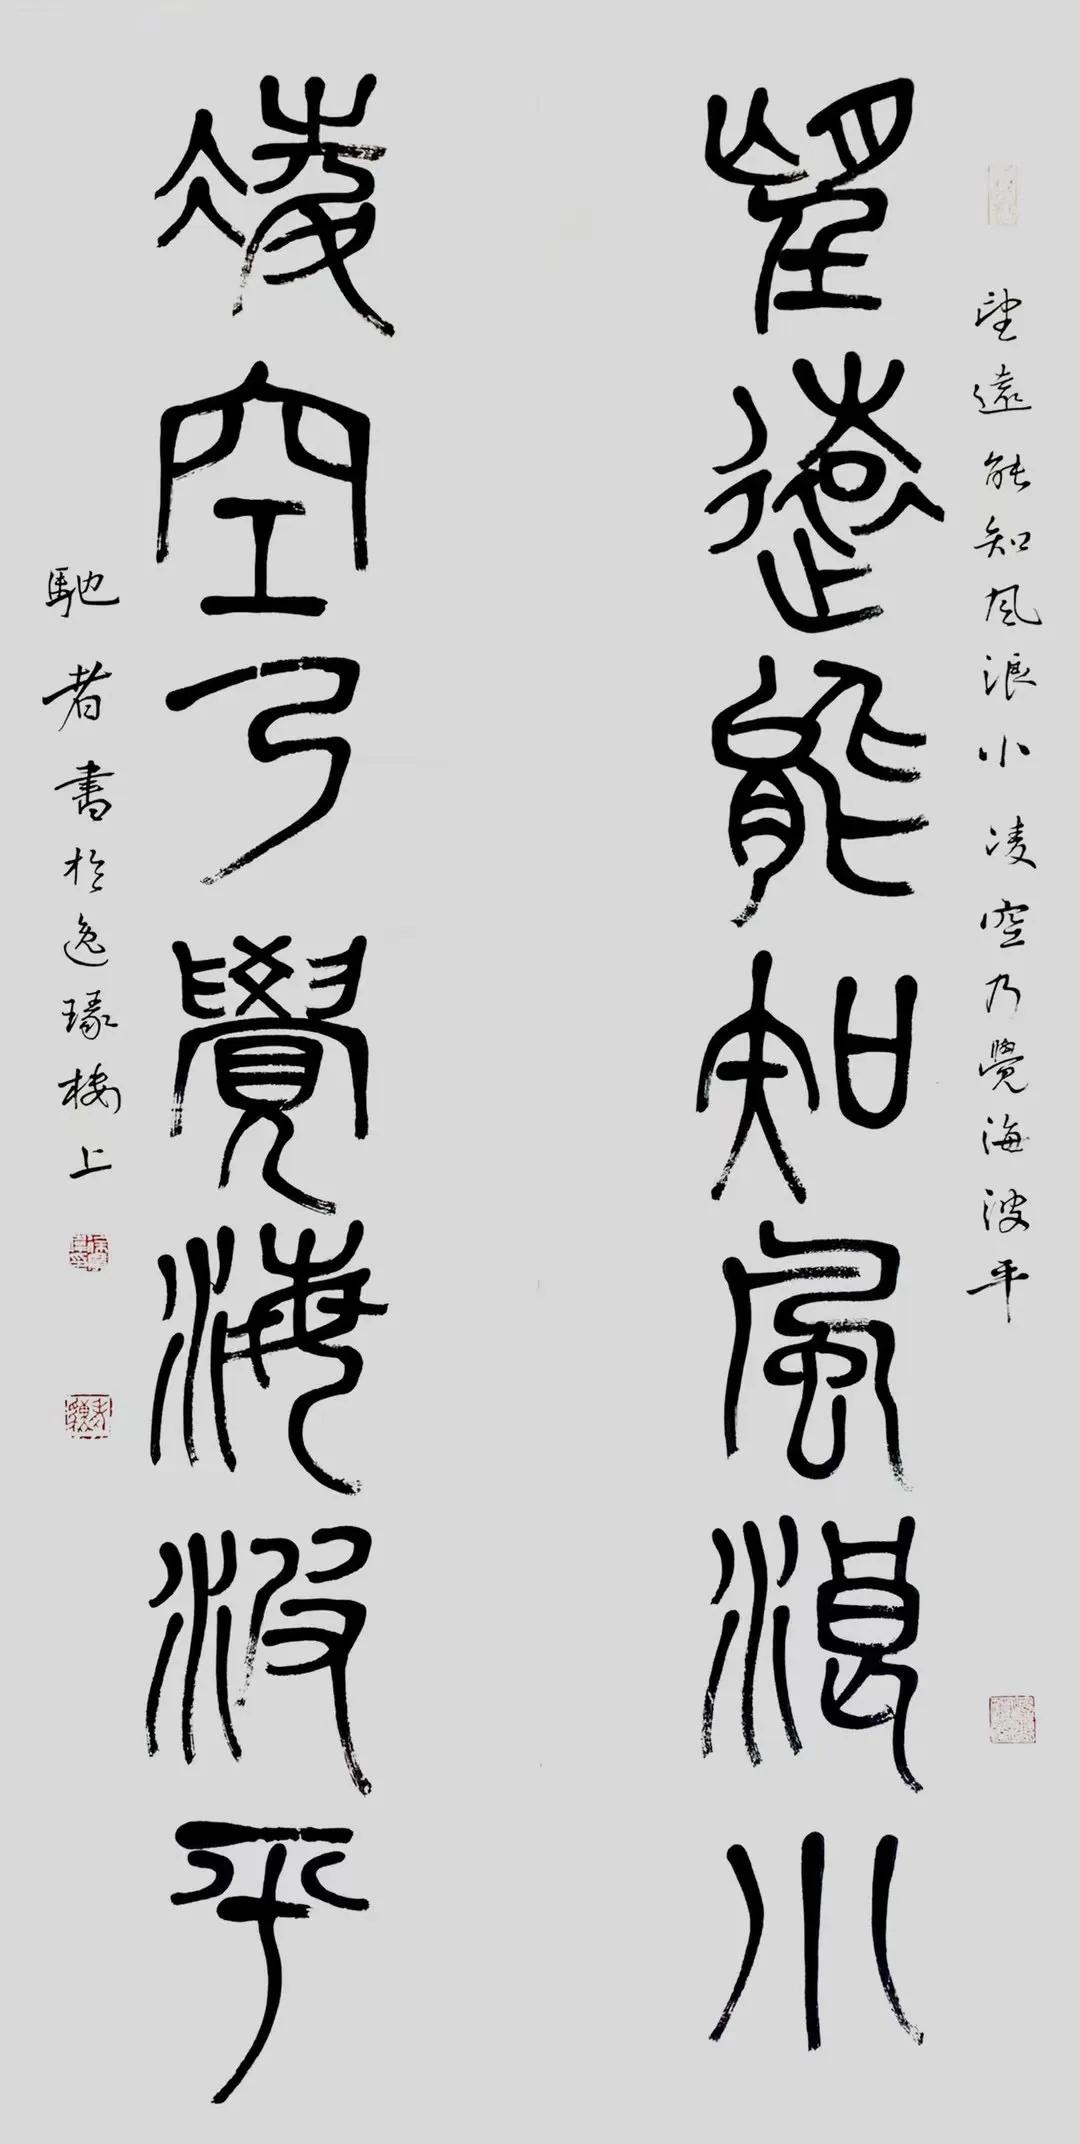 望遠能知風浪小凌空乃覺海波平
望遠能知風浪小
凌空乃覺海波平
馳者書於逸瑑樓上